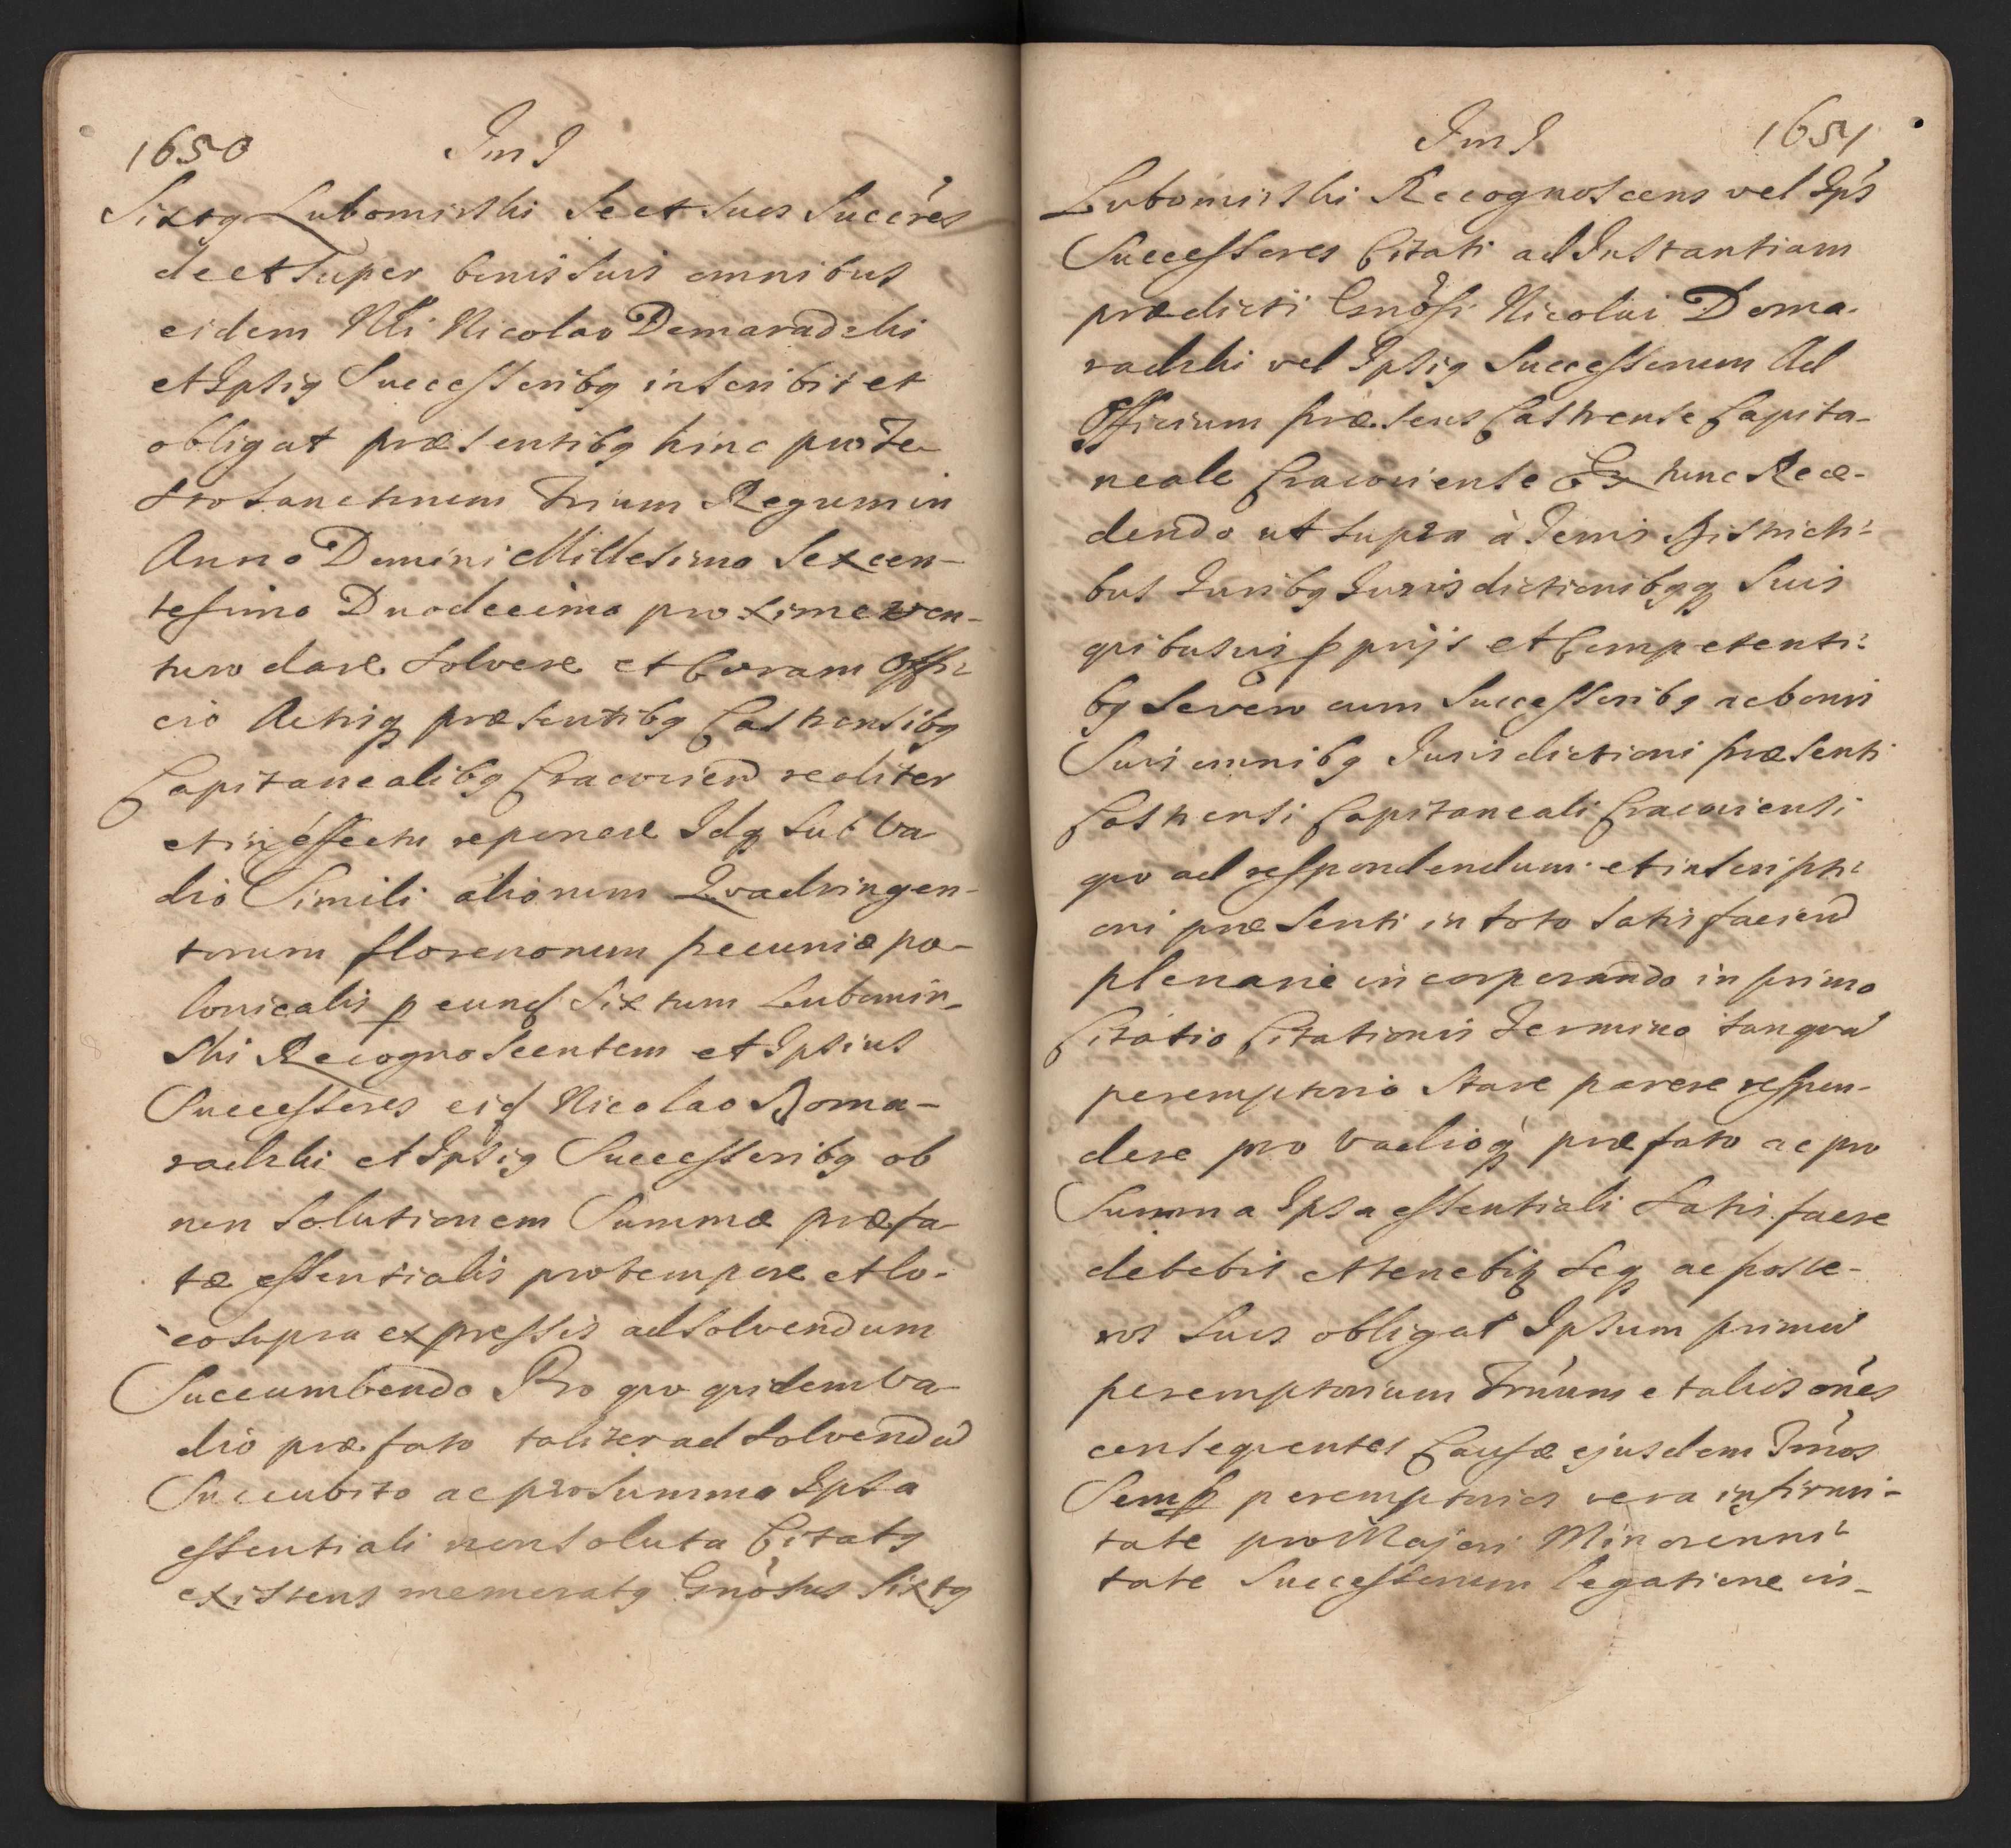 1650
Im I
Sixtq Lubomirski Se et Suos Succ̃res
de et Super bonis Suis omnibus
eidem Nli Nicolao Domaradzki
et Ipsiq Successoribq inscribit et
obligat præsentibq hinc pro Fe-
sto Sanctorum Trium Regum in
Anno Domini Millesimo Sexcen-
tesimo Duodecimo proxime ven-
turo dare Solvere et Coram Offi-
cio Actisq præsentibq Castrensibq
Capitanealibq Cracovien realiter
et in effectu reponere Idq Sub Va
dio Simili aliorum Quadringen-
torum florenorum pecuniæ po-
lonicalis p eund Sixtum Lubomir-
ski Recognoscentem et Ipsius
Successores eid Nicolao Doma-
radzki et Ipsiq Successoribq ob
non Solutionem Summæ præfa-
tæ essentialis pro tempore et lo-
co Supra expressis ad Solvendum
Succumbendo Pro quo quidem Va-
dio præfato taliter ad Solvendũ
Succubito ac pro Summa Ipsa
essentiali non Soluta Citatq
existens memoratq Gnõsus Sixtq
Im I
1651
Lubomirski Recognoscens vel Ips
Successores Citati ad Instantiam
prædicti Gnõsi Nicolai Doma-
radzki vel Ipsiq Successorum Ad
Officium præsens Castrense Capita-
neale Cracoviense Ex tunc Rece-
dendo ut supra à Terris Districti-
bus Juribq Jurisdictionibqq Suis
quibusvis pprijs et Competenti-
bq Se vero cum Successoribq ac bonis
Suis omnibq Jurisdictioni præsenti
Castrensi Capitaneali Cracoviensi
quo ad respondendum et inscripti-
oni præsenti in toto Satisfaciend
plenarie incorporando in primo
Citatio Citationis Termino tanquã
peremptorio Stare parere respon-
dere pro Vadioq præfato ac pro
Summa Ipsa essentiali Satisfacere
debebit et tenebitq Seq ac poste-
ros Suos obligat Ipsum primũ
peremptorium Tr̃um et alios om̃es
consequentes Causæ ejusdem Tm̃os
Semp peremptorios vera infirmi-
tate pro Majori Minorenni-
tate Successorum legatione in-